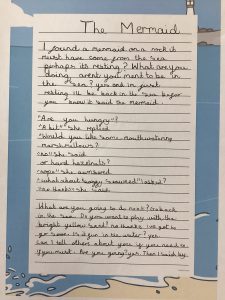 The Mermaid
I found a mermaid on a rock it
must have come from the sea
perhaps its resting? What are you
doing arent you ment to be in
the sea? yes and im just
resting ill be back in the sea befor
you know it said the mermaid
"Are you hungry"?
"A bit" she replied
"Would you like some mouthwatering
marshmallows?
"no" she said
or hard hazelnuts?
"nope" she answered
"what about soggy seaweed" I asked?
"no thanks" she said
What are you going to do next? Go back
in the sea. Do you want to play with the
bright yellow sand? no thanks. Ive got to
go soon. Is it fun in the water? yes.
Can I tell others about you if you need so
if you must. Are you going? yes. Then I said by.